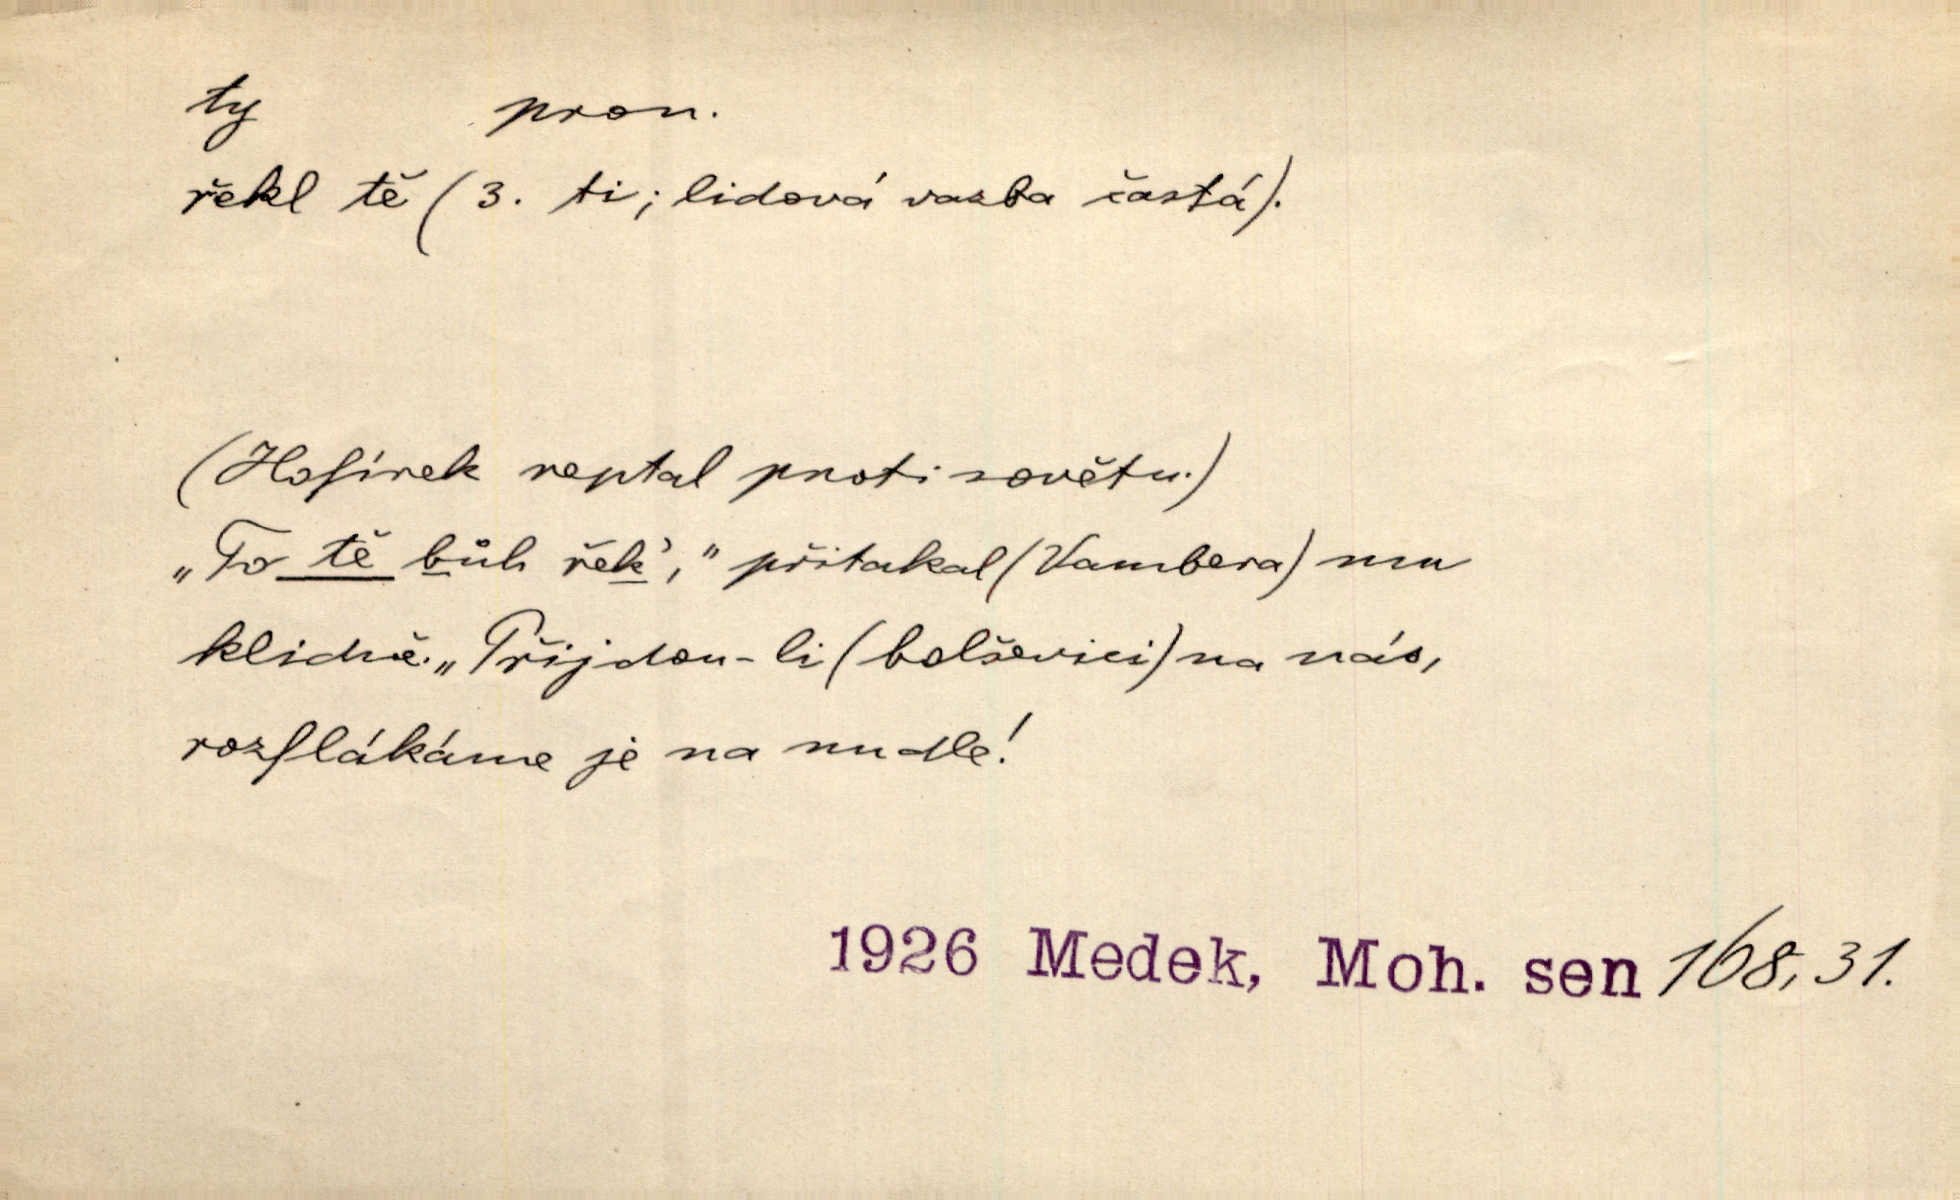 ty pron.
řekl tě (3. ti; lidová vazba častá).
(Hofírek reptal proti sovětu.)
„To tě bůh řek’,“ přitakal (Vambera) mu
klidně. „Přijdou-li (bolševici) na nás,
rozflákáme je na nudle!
1926 Medek, Moh. sen 168, 31.